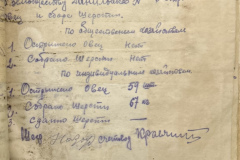 и сбору шерсти.
по общественным хозяйствам
1- Острижено овец Нет
2- Собрано шерсти Нет
по индивидуальным хозяйствам
1- Острижено овец 57
2- Собрано шерсти 67
3- Сдано шерсти —
счетовод